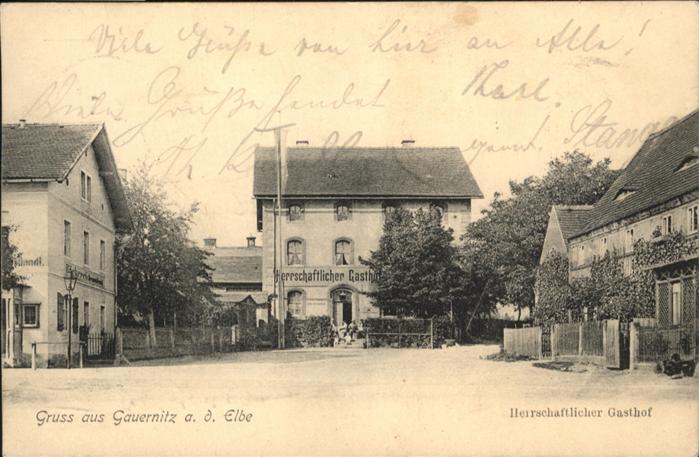 Viele Grüße von hier an Alle!
Karl.
Viele Grüße sendet
genant Stange
Herrschaftlicher Gasthof
handl.
Gruss aus Gauernitz a. d. Elbe
Herrschaftlicher Gasthof